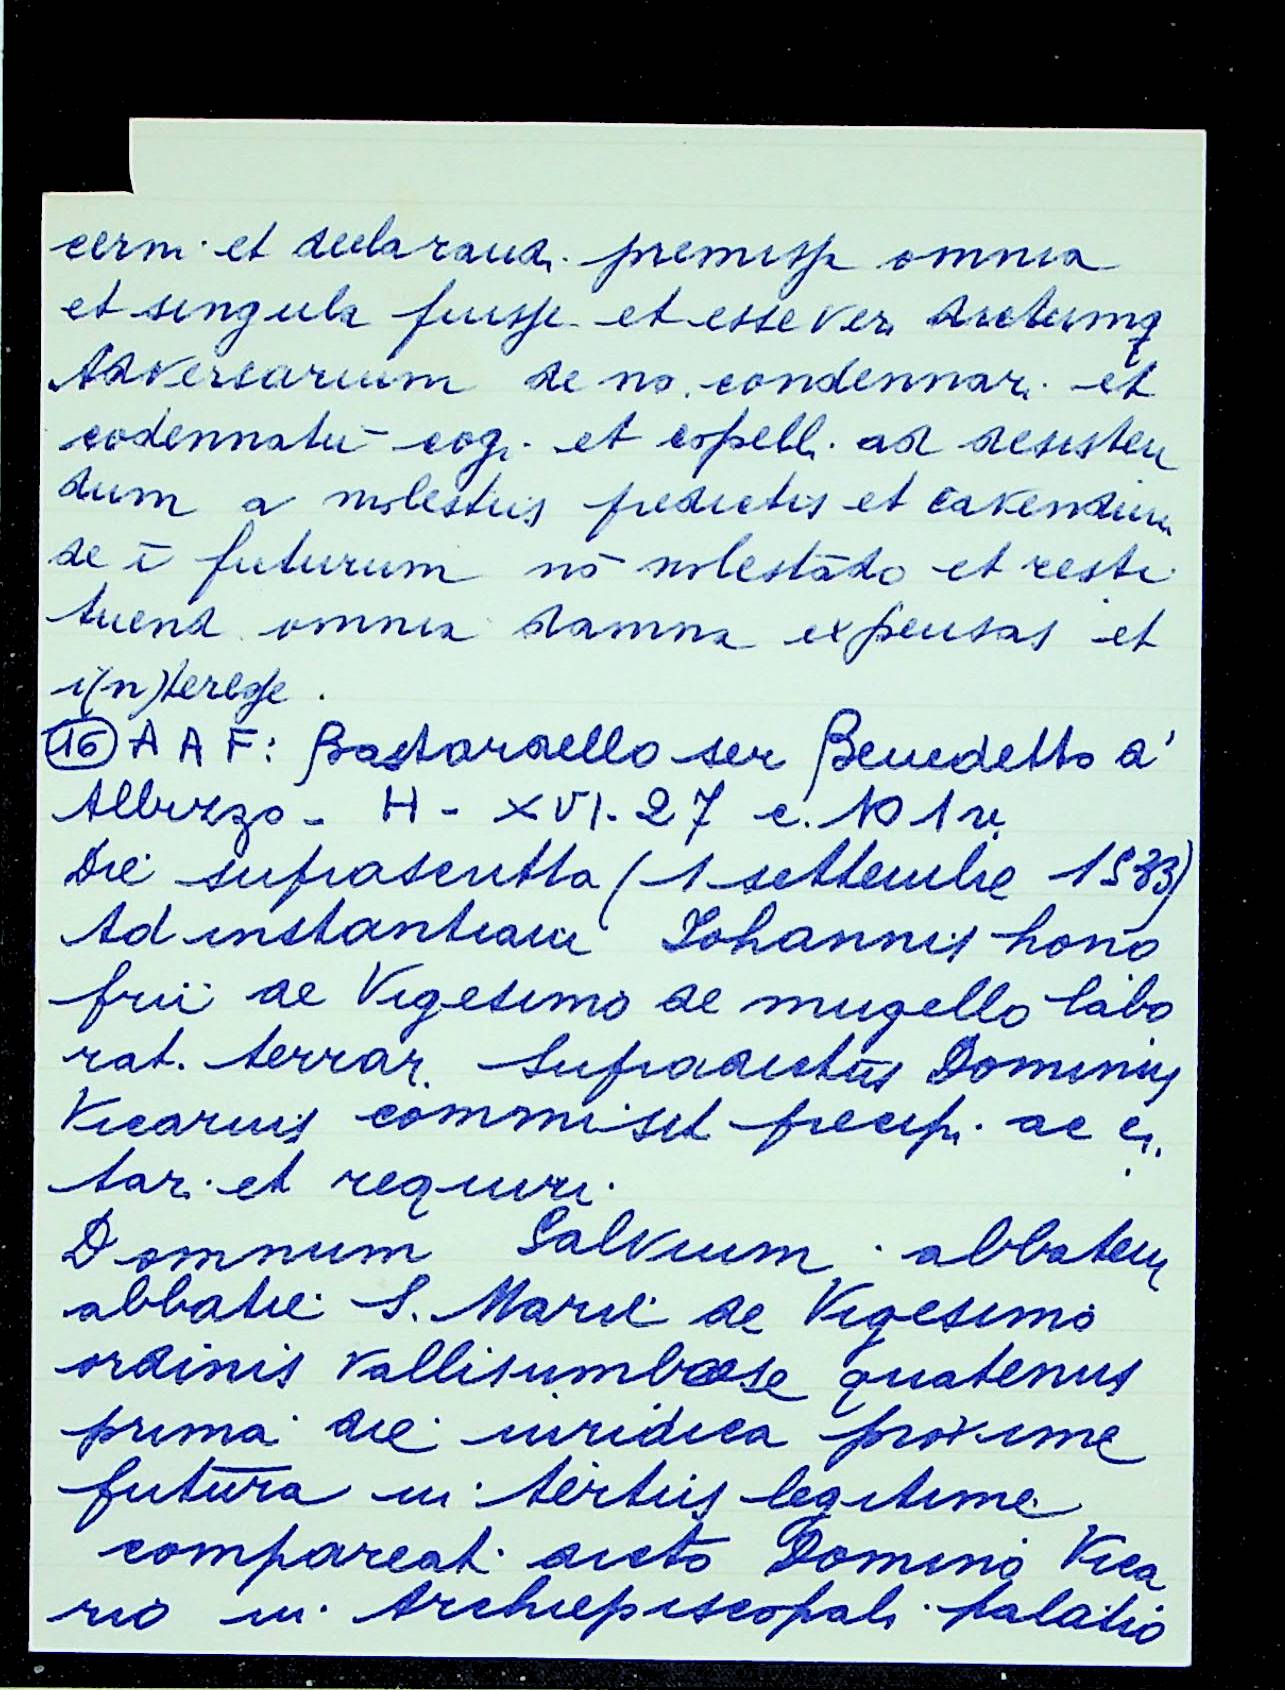 cerni et declarand. premissa omnia
et singula fuisse et esse vera dictumq
Adversarium de no. condennari et
codennatū cogi et copelli ad desisten
dum a molestiis predictis et cavendum
de ī futurum nō molestādo et resti
tuend omnia damna expensas et
i(n)teresse.
(16) A A F: Bastardello ser Benedetto d'
Albizzo - H - XVI. 27 c. 101v.
Die suprascritta (1 settembre 1533)
Ad instantiam Johannis hono
frii de Vigesimo de mugello labo
rat. terrar. supradictus Dominus
Vicarius commisit precipi ac ci
tari et requiri.
Domnum Salvium abbatem
abbatie S. Marie de Vigesimo
ordinis Vallisumbrose quatenus
prima die iuridica proxime
futūra in tertiis legitime
compareat dicto Domino Vica
rio in Archiepiscopali palatio